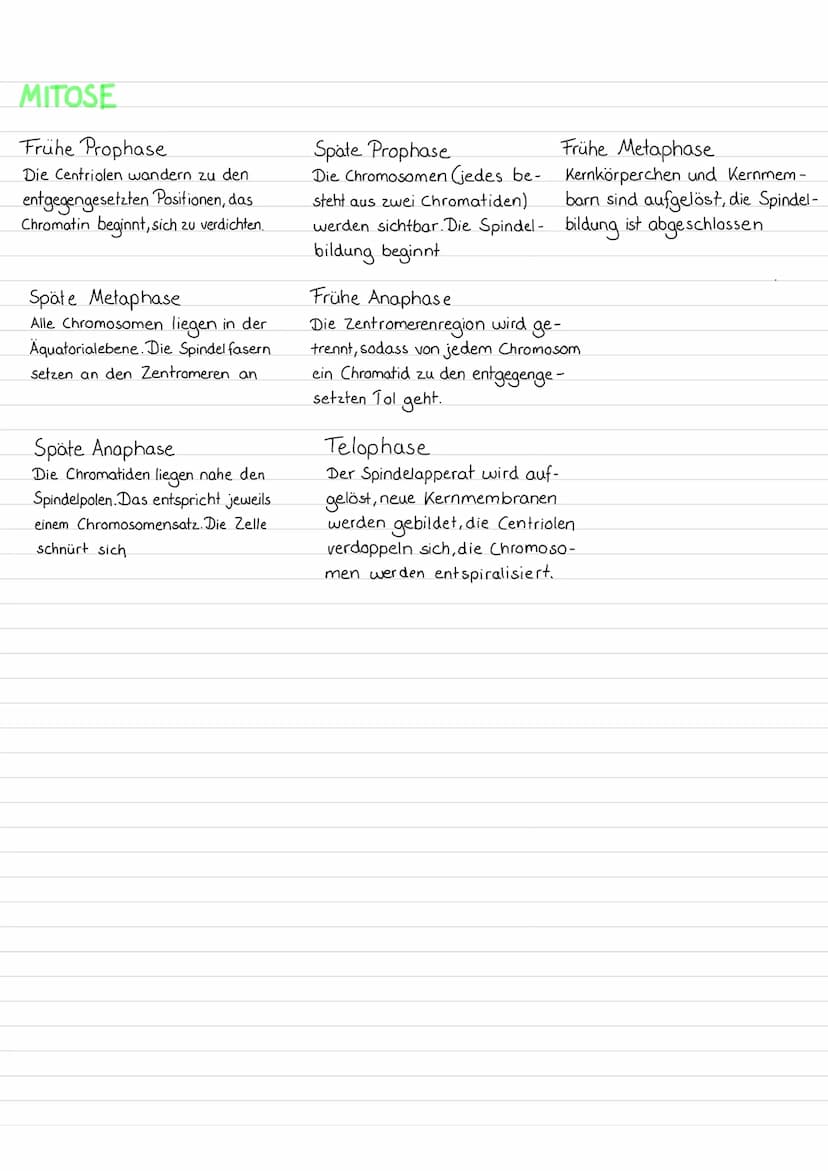 MITOSE
Frühe Prophase
Die Centriolen wandern zu den
entgegengesetzten Positionen, das
Chromatin beginnt, sich zu verdichten.
Späte Prophase
Die Chromosomen (jedes be-
steht aus zwei Chromatiden)
werden sichtbar. Die Spindel-
bildung beginnt
Frühe Metaphase
Kernkörperchen und Kernmem-
barn sind aufgelöst, die Spindel-
bildung ist abgeschlossen
Späte Metaphase
Alle Chromosomen liegen in der
Äquatorialebene. Die Spindelfasern
setzen an den Zentromeren an
Frühe Anaphase
Die Zentromerenregion wird ge-
trennt, sodass von jedem Chromosom
ein Chromatid zu den entgegenge-
setzten Tol geht.
Späte Anaphase
Die Chromatiden liegen nahe den
Spindelpolen. Das entspricht jeweils
einem Chromosomensatz. Die Zelle
schnürt sich
Telophase
Der Spindelapperat wird auf-
gelöst, neue Kernmembranen
werden gebildet, die Centriolen
verdoppeln sich, die Chromoso-
men werden entspiralisiert.